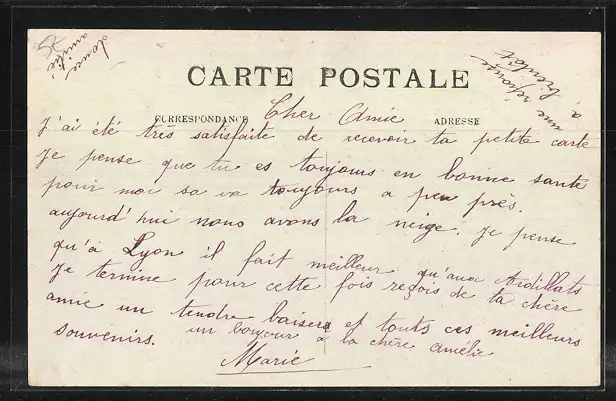 douce
amitié
à une réponse
bientôt
CARTE POSTALE
CORRESPONDANCE
ADRESSE
Cher Amie
J'ai été très satisfaite de recevoir ta petite carte
Je pense que tu es toujours en bonne santé
pour moi sa va toujours a peu près.
aujourd'hui nous avons la neige. Je pense
qu'à Lyon il fait meilleur qu'aux Ardillats
Je termine pour cette fois reçois de la chère
amie un tendre baisers et touts ces meilleurs
souvenirs. un bonjour à la chère amélie
Marie